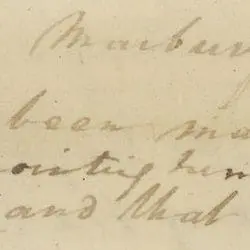 Marbury
been ma
ointing him
and that